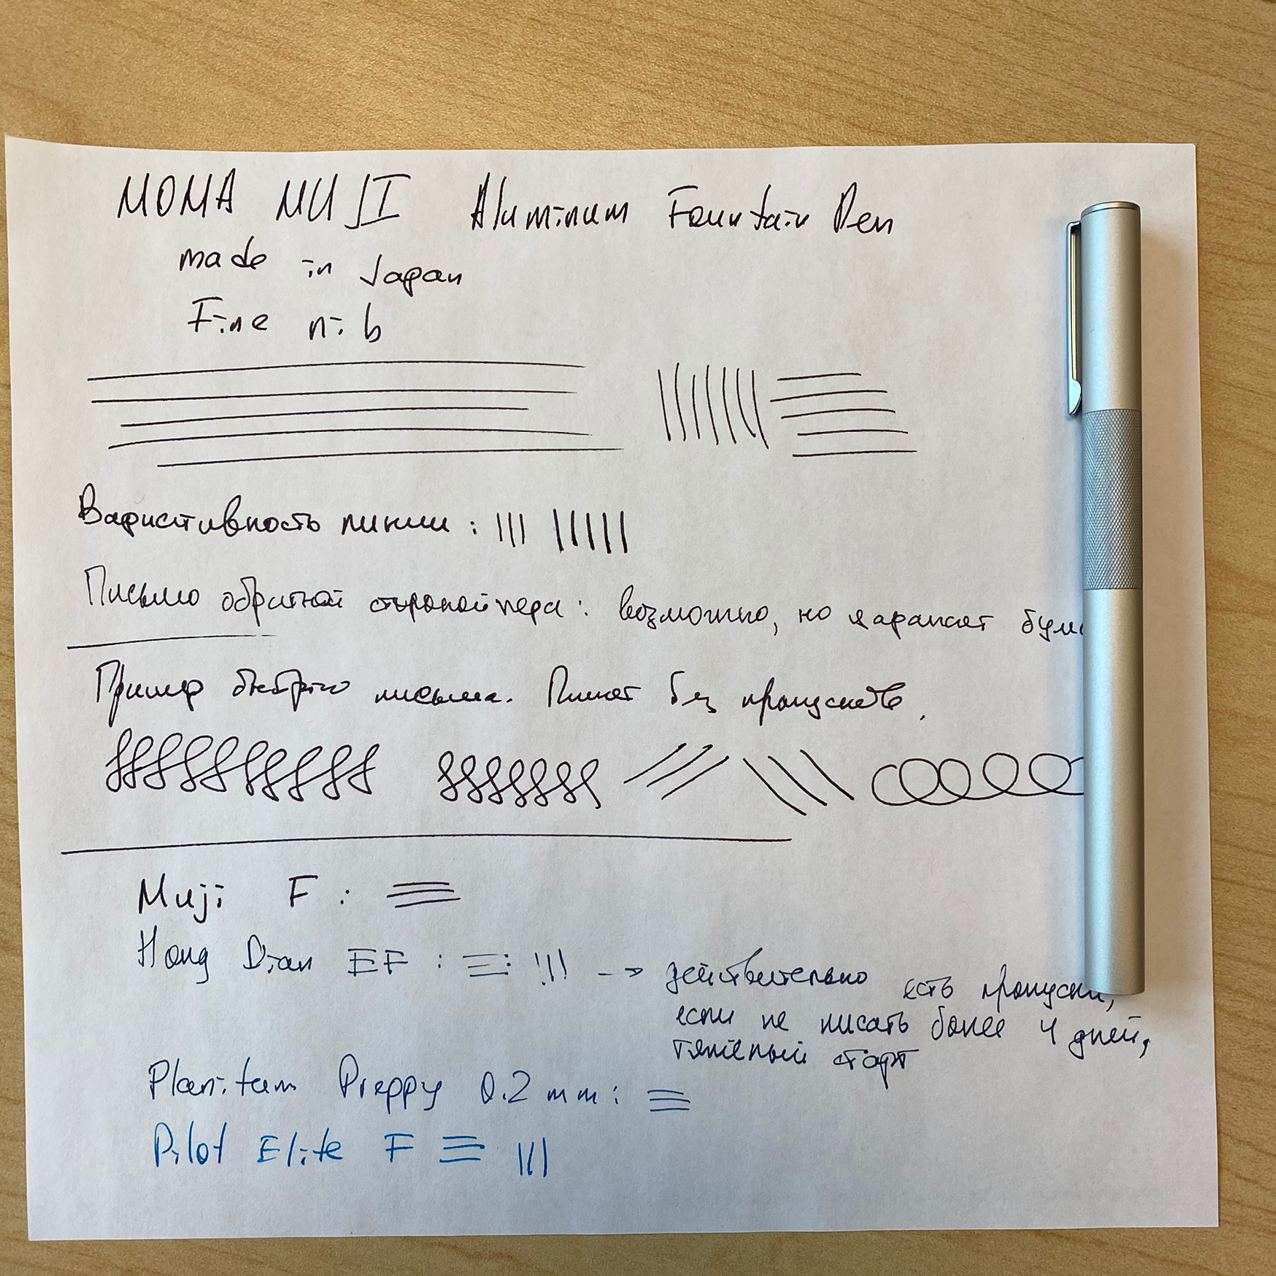 MOMA MUJI Aluminum Fountain Pen
made in Japan
Fine nib
Вариативность линии :
Письмо обратной стороной пера : возможно, но царапает бума
Пример быстрого письма. Пишет без пропусков.
Muji F :
Hong Dian EF : → действительно есть пропуски,
если не писать более 4 дней,
тяжелый старт
Planitum Preppy 0.2 mm :
Pilot Elite F